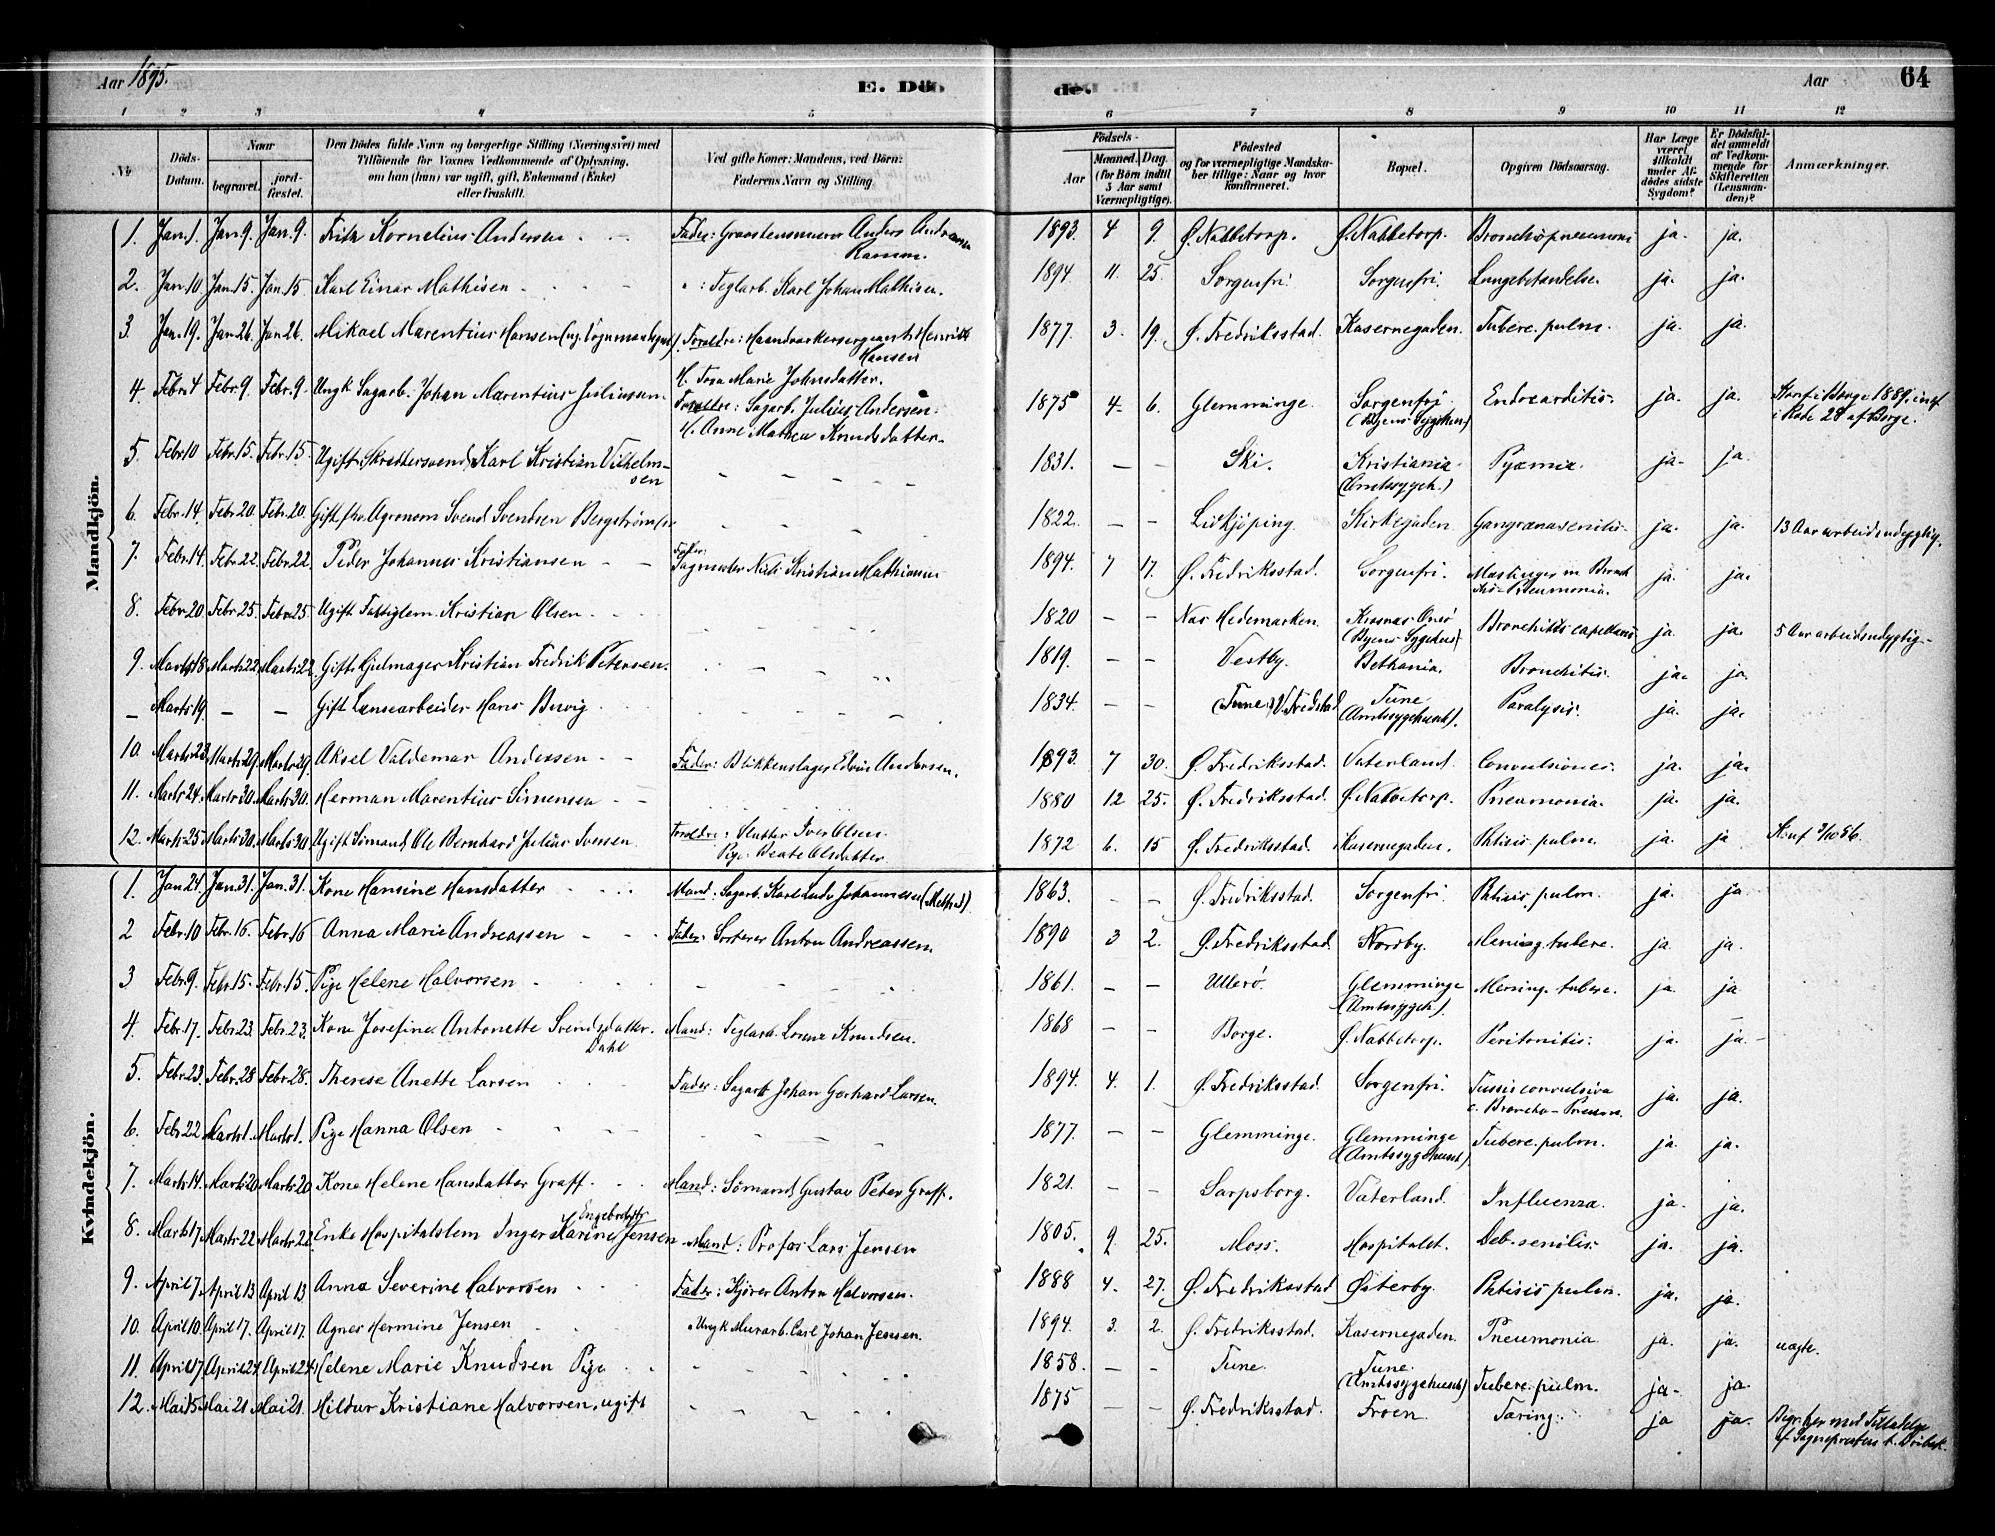 Aar 1895. E. Döde. Aar 64
1 2 3 4 5 6 7 8 9 10 11 12
№
Döds-Datum.
Naar
begravet. jordfæstet.
Den Dödes fulde Navn og borgerlige Stilling (Næringsvei) med
Tilföiende for Voxnes Vedkommende af Oplysning,
om han (hun) var ugift, gift, Enkemand (Enke)
eller fraskilt.
Ved gifte Koner: Mandens, ved Börn:
Faderens Navn og Stilling.
Födsels-
Aar Maaned. Dag.
(for Börn indtil
5 Aar samt
Værnepligtige).
Födested
og for værnepligtige Mandskaber tillige: Naar og hvor
konfirmeret.
Bopæl.
Opgiven Dödsaarsag.
Har Læge
været
tilkaldt
under Afdödes sidste
Sygdom?
Er Dödsfaldet anmeldt
af Vedkommende for
Skifteretten
(Lensmanden)?
Anmærkninger.
Mandkjön.
1. Jan. 1. Jan. 9. Jan. 9. Fritz Kornelius Andersen Fader: Graastensmurer Anders Andersen 1893. 4 9. Ø. Nabbetorp. Ø. Nabbetorp. Bronchopneumoni ja. ja.
Ramm.
2. Jan. 10 Jan. 15 Jan. 15 Karl Einar Mathisen " : Teglarb. Karl Johan Mathisen. 1894 11. 25. Sorgenfri. Sorgenfri. Lungebetændelse. ja. ja.
3 Jan. 19. Jan. 26. Jan. 26. Mikael Marentius Hansen Forældre: Haandværkersergeant Henrik 1877. 3. 19. Ø. Fredriksstad. Kasernegaden. Tuberc. pulm. ja. ja.
Hansen
H. Marie Johnsdatter.
4. Febr. 4 Febr. 9. Febr. 9. Ungk Sagarb. Johan Marentius Juliussen Forældre: Sagarb. Julius Andersen 1875 4. 6. Glemminge. Sorgenfri Endocarditis. ja. ja. Konf i Borge 1889,
H. Anne Mathea Knudsdatter. (Byens Sygehus) af Borge.
5. Febr. 10 Febr. 15. Febr. 15. Ugift Skræddersvend Karl Kristian Vilhelm- 1831. — — Ski. Kristiania Pyæmia. ja. ja.
sen (Amtssygeh.)
6. Febr. 14. Febr. 20. Febr. 20. Gift fhv. Agronom Svend Svendsen Bergström 1822. — — Lidkjöping. Kirkegaden. Gangræna senilis. ja. ja. 13 Aar arbeidsudygtig.
7. Febr. 14. Febr. 22. Febr. 22. Peder Johannes Kristiansen Fader: Niels Kristian Mathisen 1894. 7 17. Ø. Fredriksstad. Sorgenfri. Mæslinger m. Bronch ja. ja.
Pneumonia.
8. Febr. 20 Febr. 25 Febr. 25 Ugift Fattiglem. Kristian Olsen. 1820 — — Næs Hedemarken. Onsö Bronchitis capillaris ja. ja. 5 Aar arbeidsudygtig
(Byens Sygehus)
9. Marts 18 Marts 22 Marts 22 Gift Kristian Fredrik Petersen. 1819. — — Vestby. Bethania. Bronchitis. ja. ja.
— Marts 19. — — Gift Lænsearbeider Hans Buvig 1834. — — (Tune) V. Fredstad Tune Paralysis. ja. ja.
(Amtssygehuset).
10. Marts 23. Marts 29. Marts 29. Aksel Valdemar Andersen Fader: Blikkenslager Edvin Andersen. 1893. 7 30. Ø. Fredriksstad. Vaterland. Convulsiones. ja. ja.
11. Marts 24. Marts 30. Marts 30. Herman Marentius Simensen 1880 12 25. Ø. Fredriksstad. Ø. Nabbetorp. Pneumonia. ja. ja.
12. Marts 25 Marts 30. Marts 30. Ugift Sömand Ole Bernhard Julius Iversen Forældre: Slutter Iver Olsen 1872 6. 15 Ø. Fredriksstad. Kasernegaden. Phtisis pulm. ja. ja Konf 3/10 86.
Pige Beate Olsdatter
Kvindekjön.
1. Jan. 24. Jan. 31. Jan. 31. Kone Hansine Hansdatter Mand: Sagarb. Karl Ludv. Johannesen 1863. — — Ø. Fredriksstad. Sorgenfri. Phtisis pulm. ja. ja.
2 Febr. 10 Febr. 16. Febr. 16 Anna Marie Andreassen Fader: Sorterer Anton Andreassen. 1890 3 2. Ø. Fredriksstad. Nordby. Mening. tuberc. ja. ja.
3 Febr. 9. Febr. 15. Febr. 15. Pige Helene Halvorsen 1861. — — Ullerö. Glemminge Mening. tuberc. ja. ja
(Amtssygeh.)
4. Febr. 17. Febr. 23. Febr. 23. Kone Josefine Antonette Svendsdatter. Mand: Teglarb. Lorenz Knudsen. 1868 — — Borge. Ø. Nabbetorp. Peritonitis. ja. ja.
Dahl
5. Febr. 23. Febr. 28 Febr. 28. Therese Anette Larsen Fader: Sagarb Johan Gerhard Larsen. 1894. 4. 1. Ø. Fredriksstad. Sorgenfri. Tussis convulsiva ja. ja.
c. Broncho-Pneum.
6. Febr. 22 Marts 1. Marts 1. Pige Hanna Olsen 1877. — — Glemminge. Glemminge Tuberc. pulm. ja. ja.
(Amtssygehuset)
7. Marts 14. Marts 20 Marts 20 Kone Helene Hansdatter Graff. Mand: Sömand Gustav Peter Graff. 1821. — — Sarpsborg. Vaterland. Influenza. ja. ja.
Engebretsdtr
8. Marts 17. Marts 22 Marts 22. Enke Hospitalslem Inger Karine Jensen Mand: Lars Jensen 1805. 9 25. Moss. Hospitalet. Deb. senilis. ja. ja.
9. April 7. April 13 April 13 Anna Severine Halvorsen Fader: Kjörer Anton Halvorsen. 1888 4. 27. Ø. Fredriksstad Østerby. Phtisis pulm. ja. ja.
10. April 10. April 17. April 17. Agnes Hermine Jensen " Ungk Murarb. Carl Johan Jensen. 1894. 3. 2. Ø. Fredriksstad. Kasernegaden. Pneumonia ja. ja. uægte.
11. April 17. April 24. April 24. Helene Marie Knudsen Pige 1858. — — Tune. Tune.
(Amtssygehuset) Tuberc. pulm. ja. ja
12. Mai 15 Mai 21. Mai 21. Hildur Kristiane Halvorsen, ugift 1875 — — Ø. Fredriksstad. Froen. ja ja. Begr. her med Tilladelse
af Sognepresten t. Dröbak.